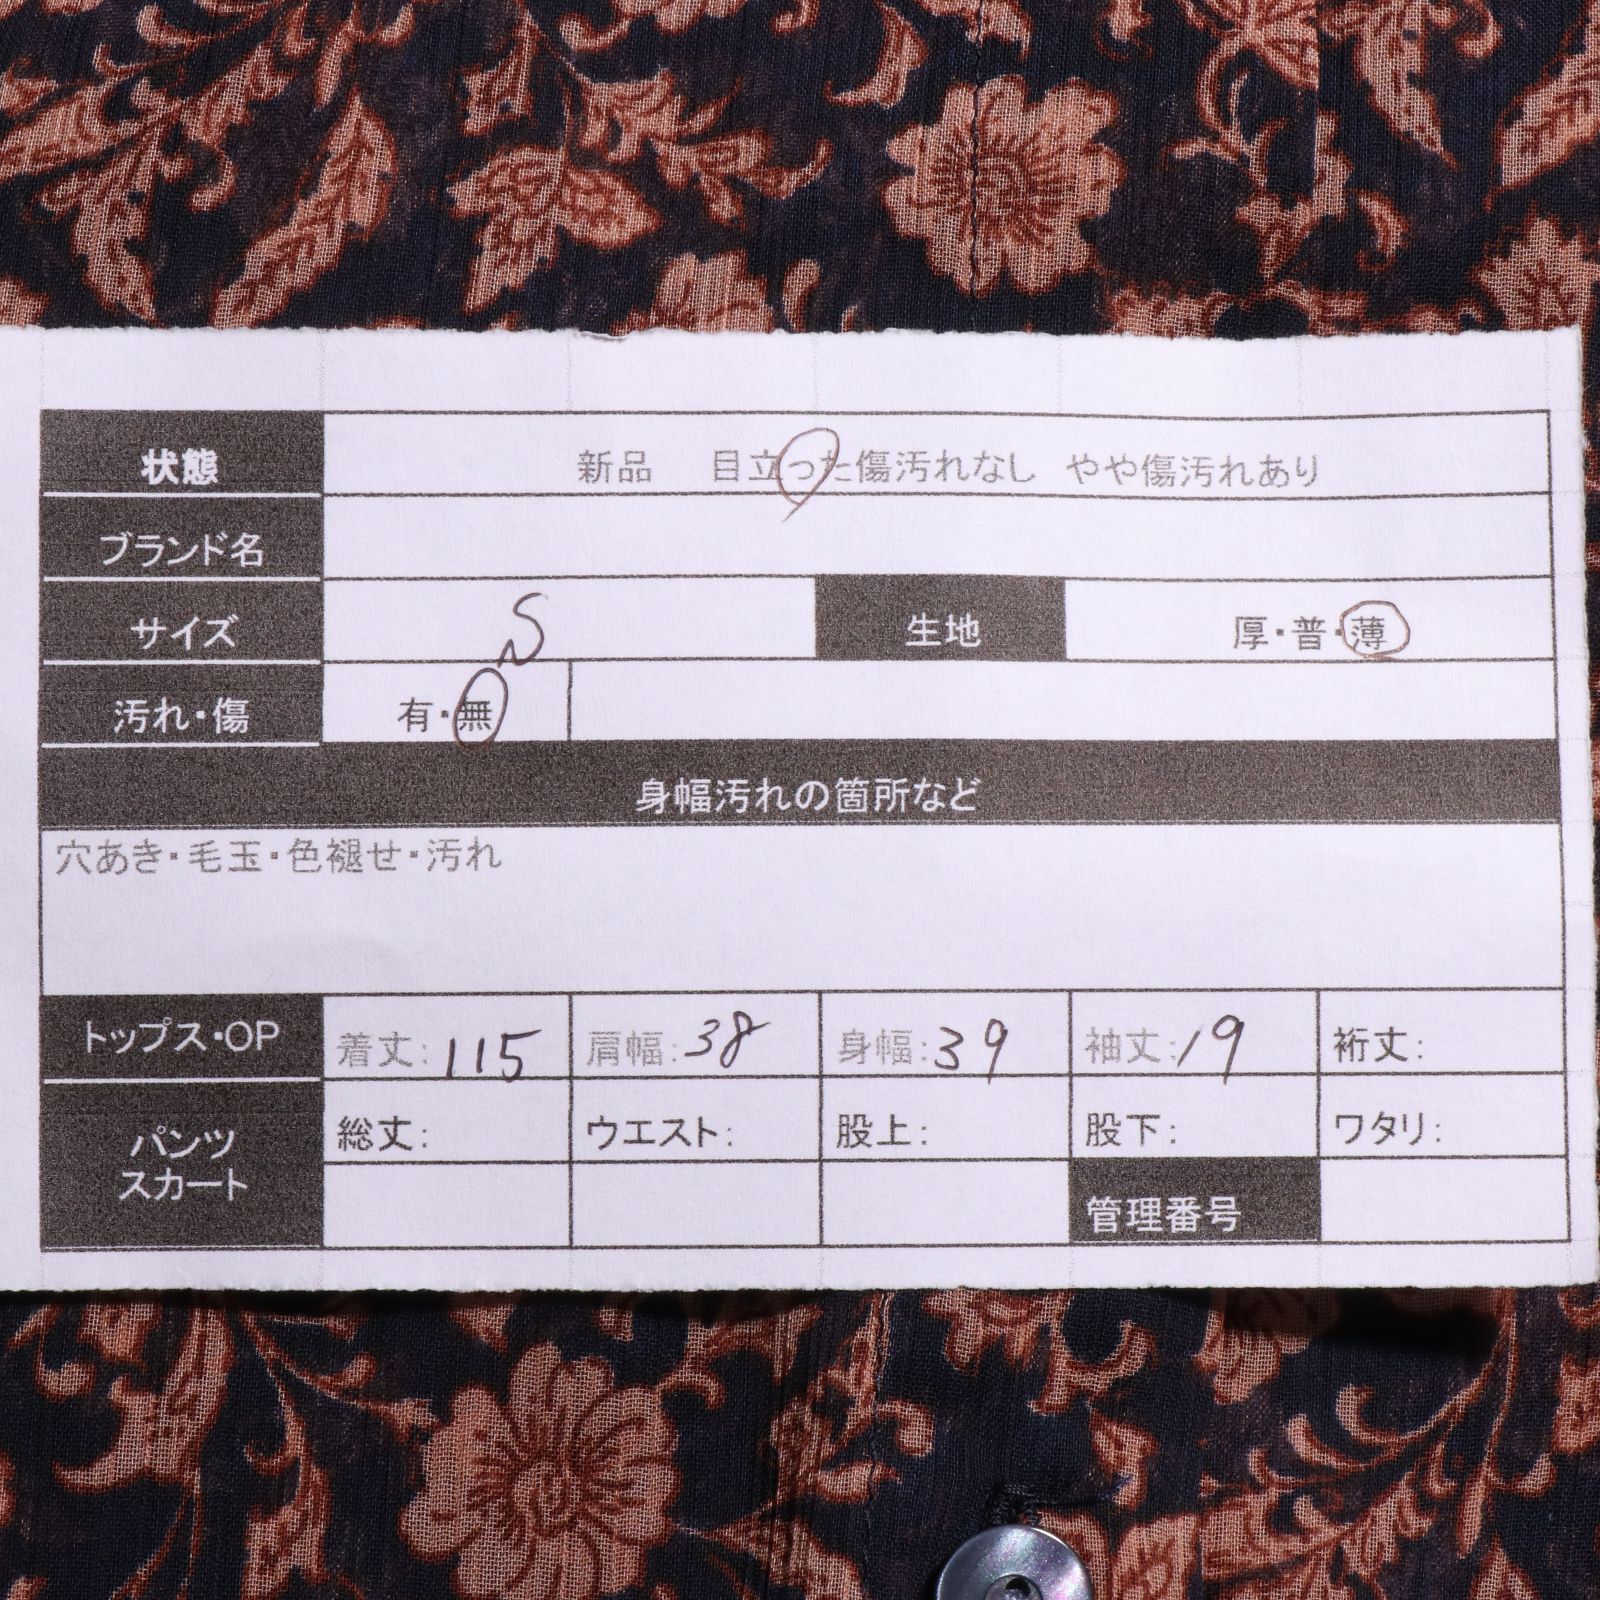 状態 新品 目立った傷汚れなし やや傷汚れあり
ブランド名
サイズ S 生地 厚・普・薄
汚れ・傷 有・無
身幅汚れの箇所など
穴あき・毛玉・色褪せ・汚れ
トップス・OP 着丈: 115 肩幅: 38 身幅: 39 袖丈: 19 裄丈:
パンツ
スカート
総丈: ウエスト: 股上: 股下: ワタリ:
管理番号